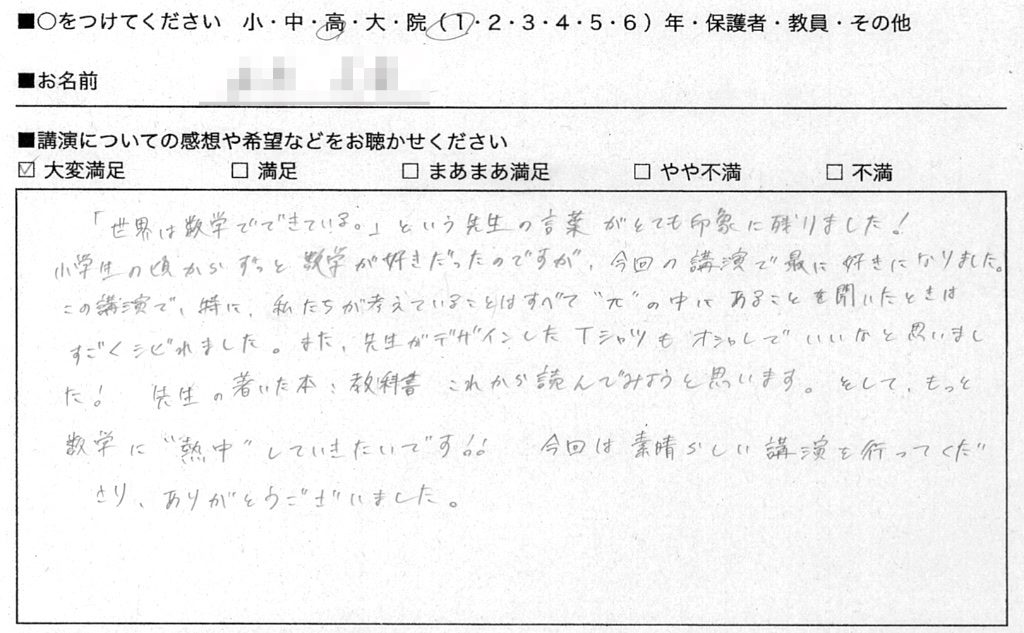 ■○をつけてください 小・中・高・大・院（1・2・3・4・5・6）年・保護者・教員・その他
■お名前
■講演についての感想や希望などをお聴かせください
☑ 大変満足 □ 満足 □ まあまあ満足 □ やや不満 □ 不満
「世界は数学でできている。」という先生の言葉がとても印象に残りました！
小学生の頃からずっと数学が好きだったのですが、今回の講演で最に好きになりました。
この講演で、特に、私たちが考えていることはすべて"π"の中にあることを聞いたときは
すごくシビれました。また、先生がデザインしたTシャツもオシャレでいいなと思いまし
た！ 先生の著いた本：教科書 これから読んでみようと思います。そして、もっと
数学に"熱中"していきたいです!! 今回は素晴らしい講演を行ってくだ
さり、ありがとうございました。